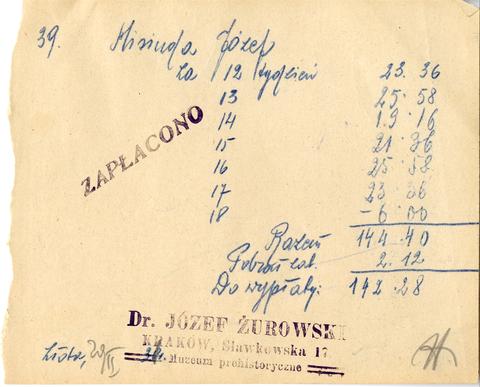 39. Misiuda Józef
za 12 tydzień 23.36
13 25.58
14 19.16
15 21.36
16 25.58
17 23.36
18 – 6.00
ZAPŁACONO
Razem 144.40
Pobrał zal. 2.12
Do wypłaty: 142.28
Dr. JÓZEF ŻUROWSKI
KRAKÓW, Sławkowska 17.
Muzeum prehistoryczne